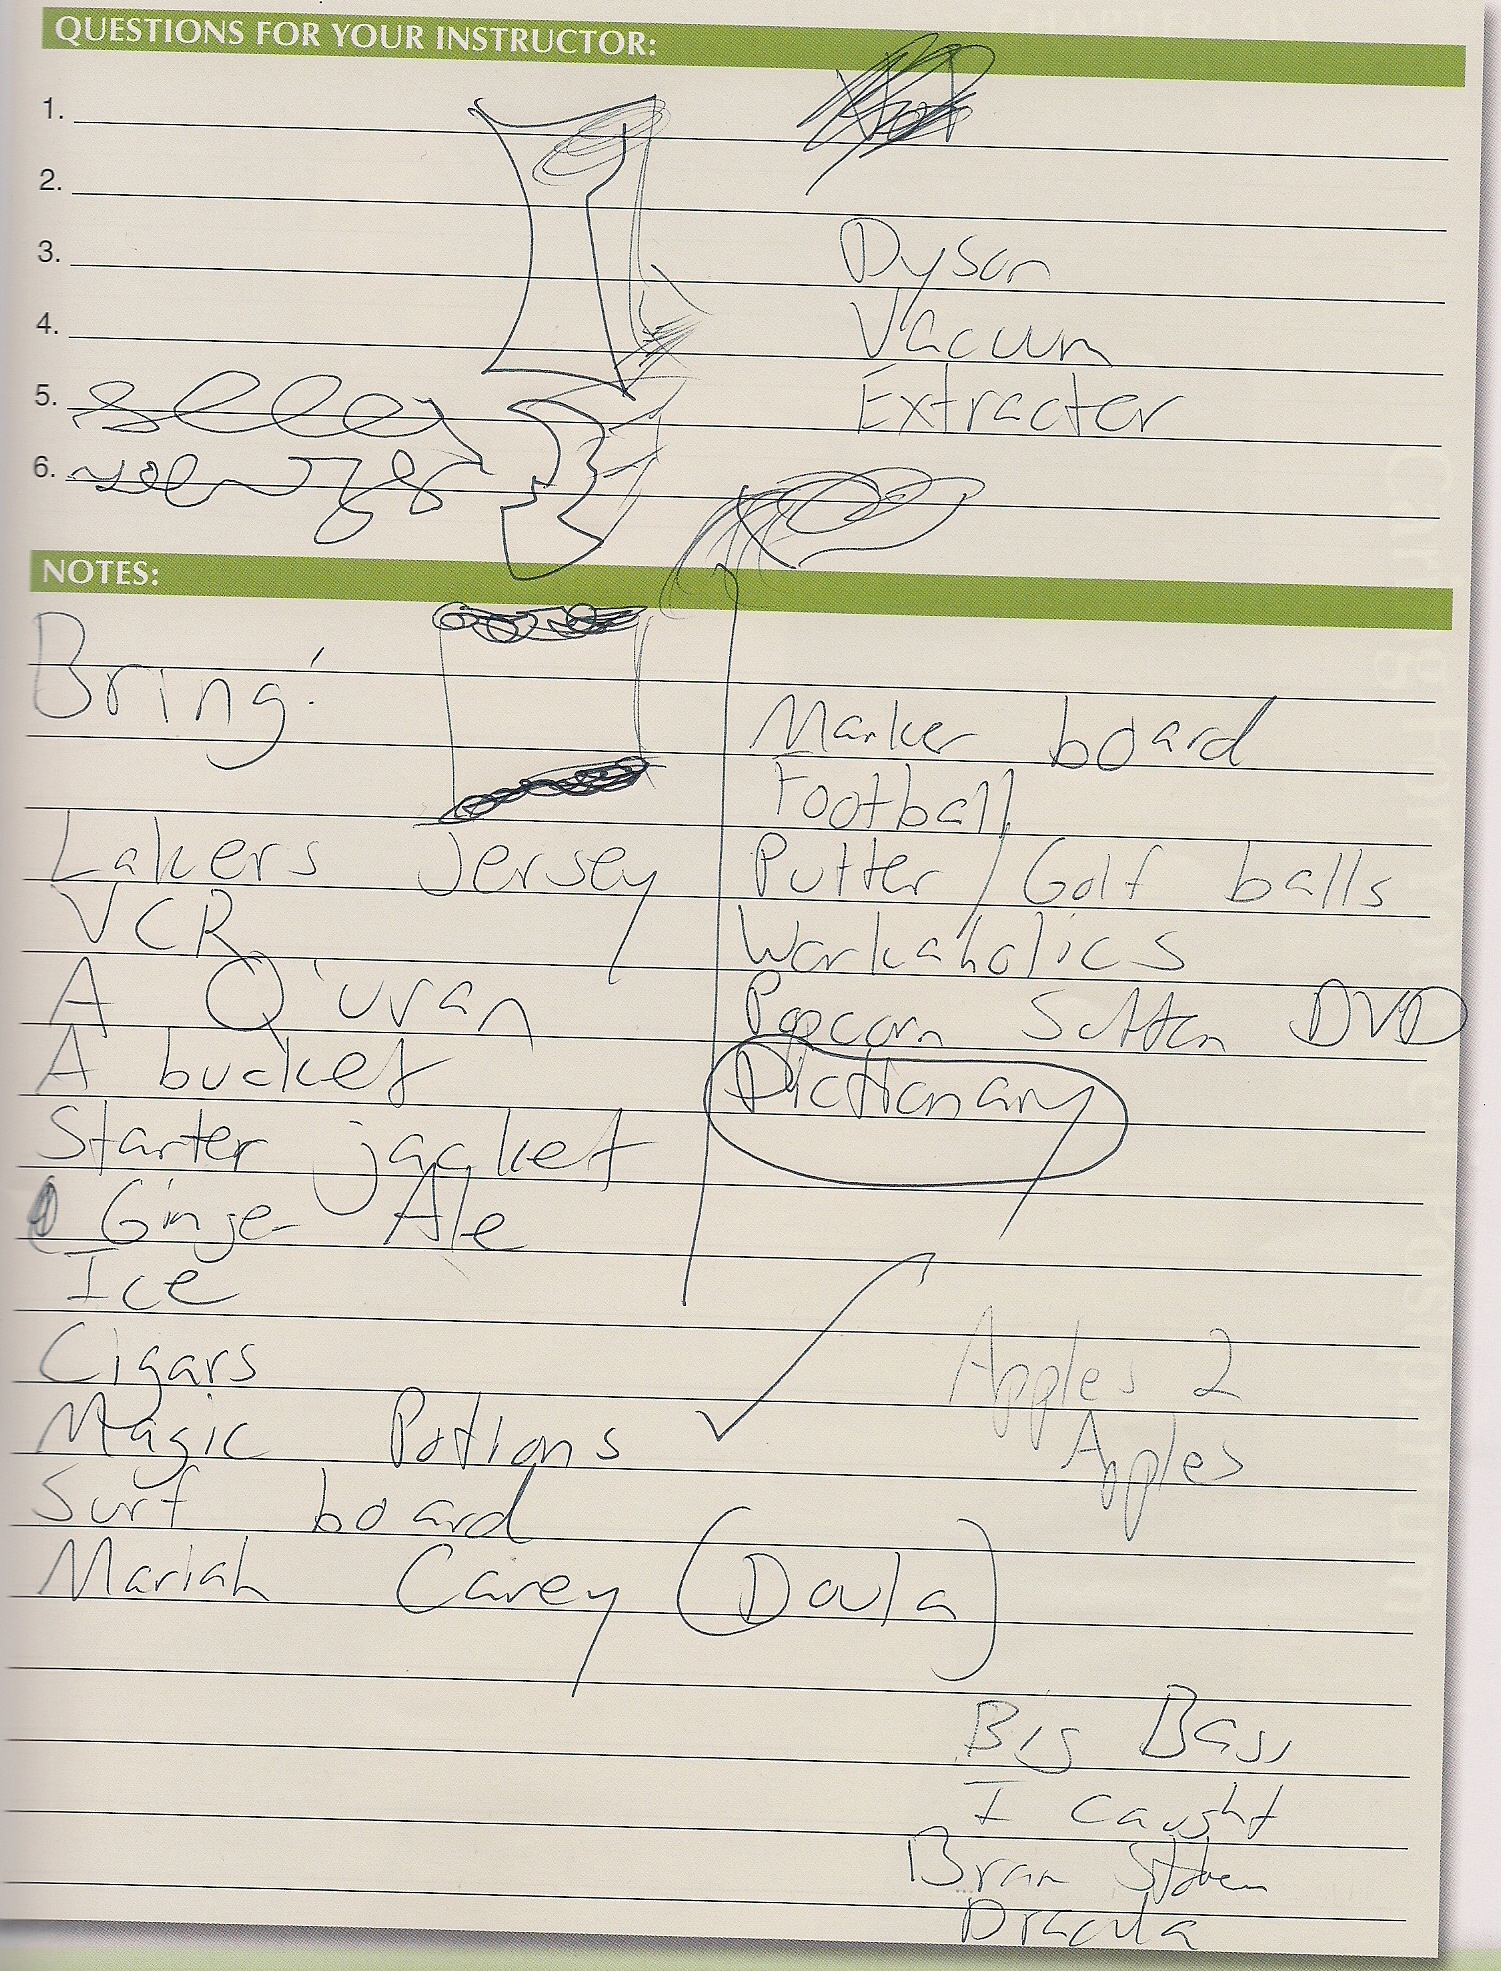 QUESTIONS FOR YOUR INSTRUCTOR:
1.
2.
3.
4.
5.
6.
Dyson
Vacuum
Extracter
NOTES:
Bring:
Lakers Jersey
VCR
A Q'uran
A bucket
Starter jacket
Ginger Ale
Ice
Cigars
Magic Potions
Surf board
Mariah Carey (Doula)
Marker board
Football
Putter / Golf balls
Workaholics
Popcorn Sutton DVD
Dictionary
Apples 2
Apples
Big Bass
I caught
Bram
Dracula